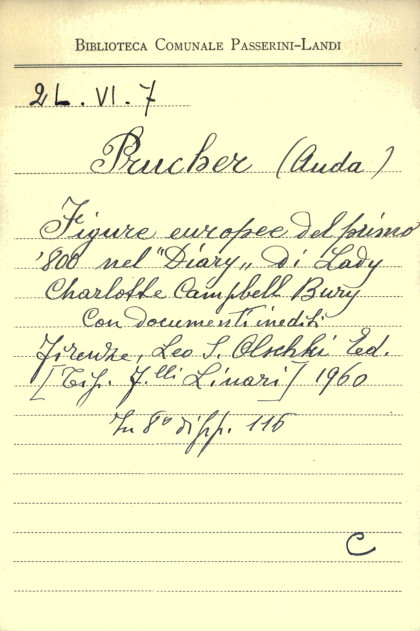 BIBLIOTECA COMUNALE PASSERINI-LANDI
2L. VI. 7
Prucher (Auda)
Figure europee del primo
'800 nel "Diary„ di Lady
Charlotte Campbell Bury
Con documenti inediti
Firenze, Leo S. Olschki Ed.
[Tip. F.lli Linari] 1960
In 8° di pp. 116
C